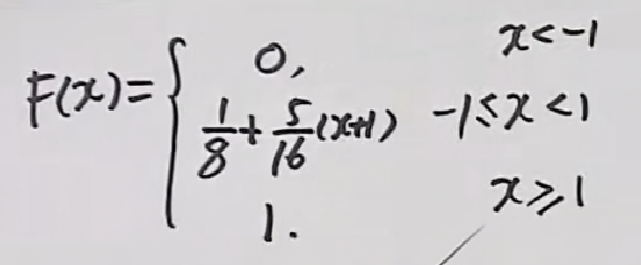 F(x)= { 0, x<-1
1/8 + 5/16 (x+1) -1≤x<1
1. x≥1